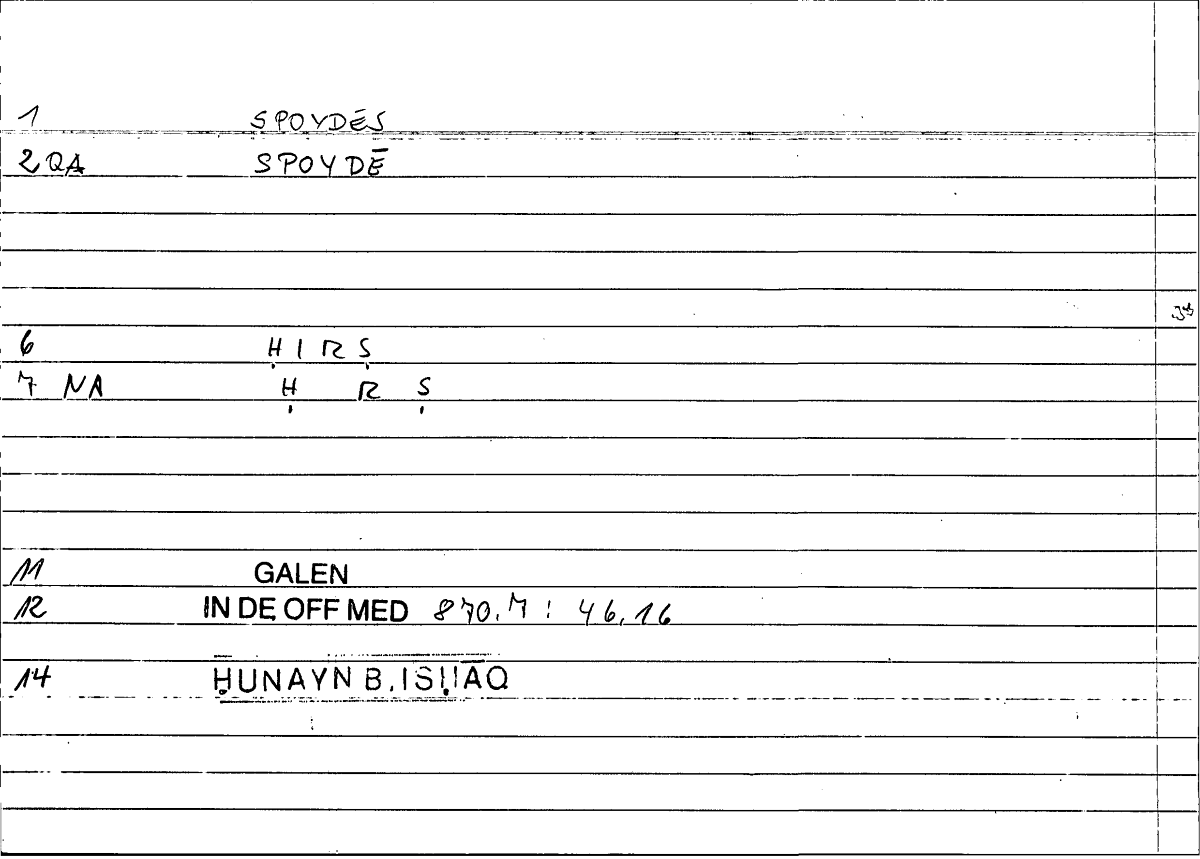 1 SPOYDĒS
2 QA SPOYDĒ
6 ḤIRṢ
7 NA Ḥ R Ṣ
11 GALEN
12 IN DE OFF MED 870.7 : 46,16
14 ḤUNAYN B. ISḤĀQ